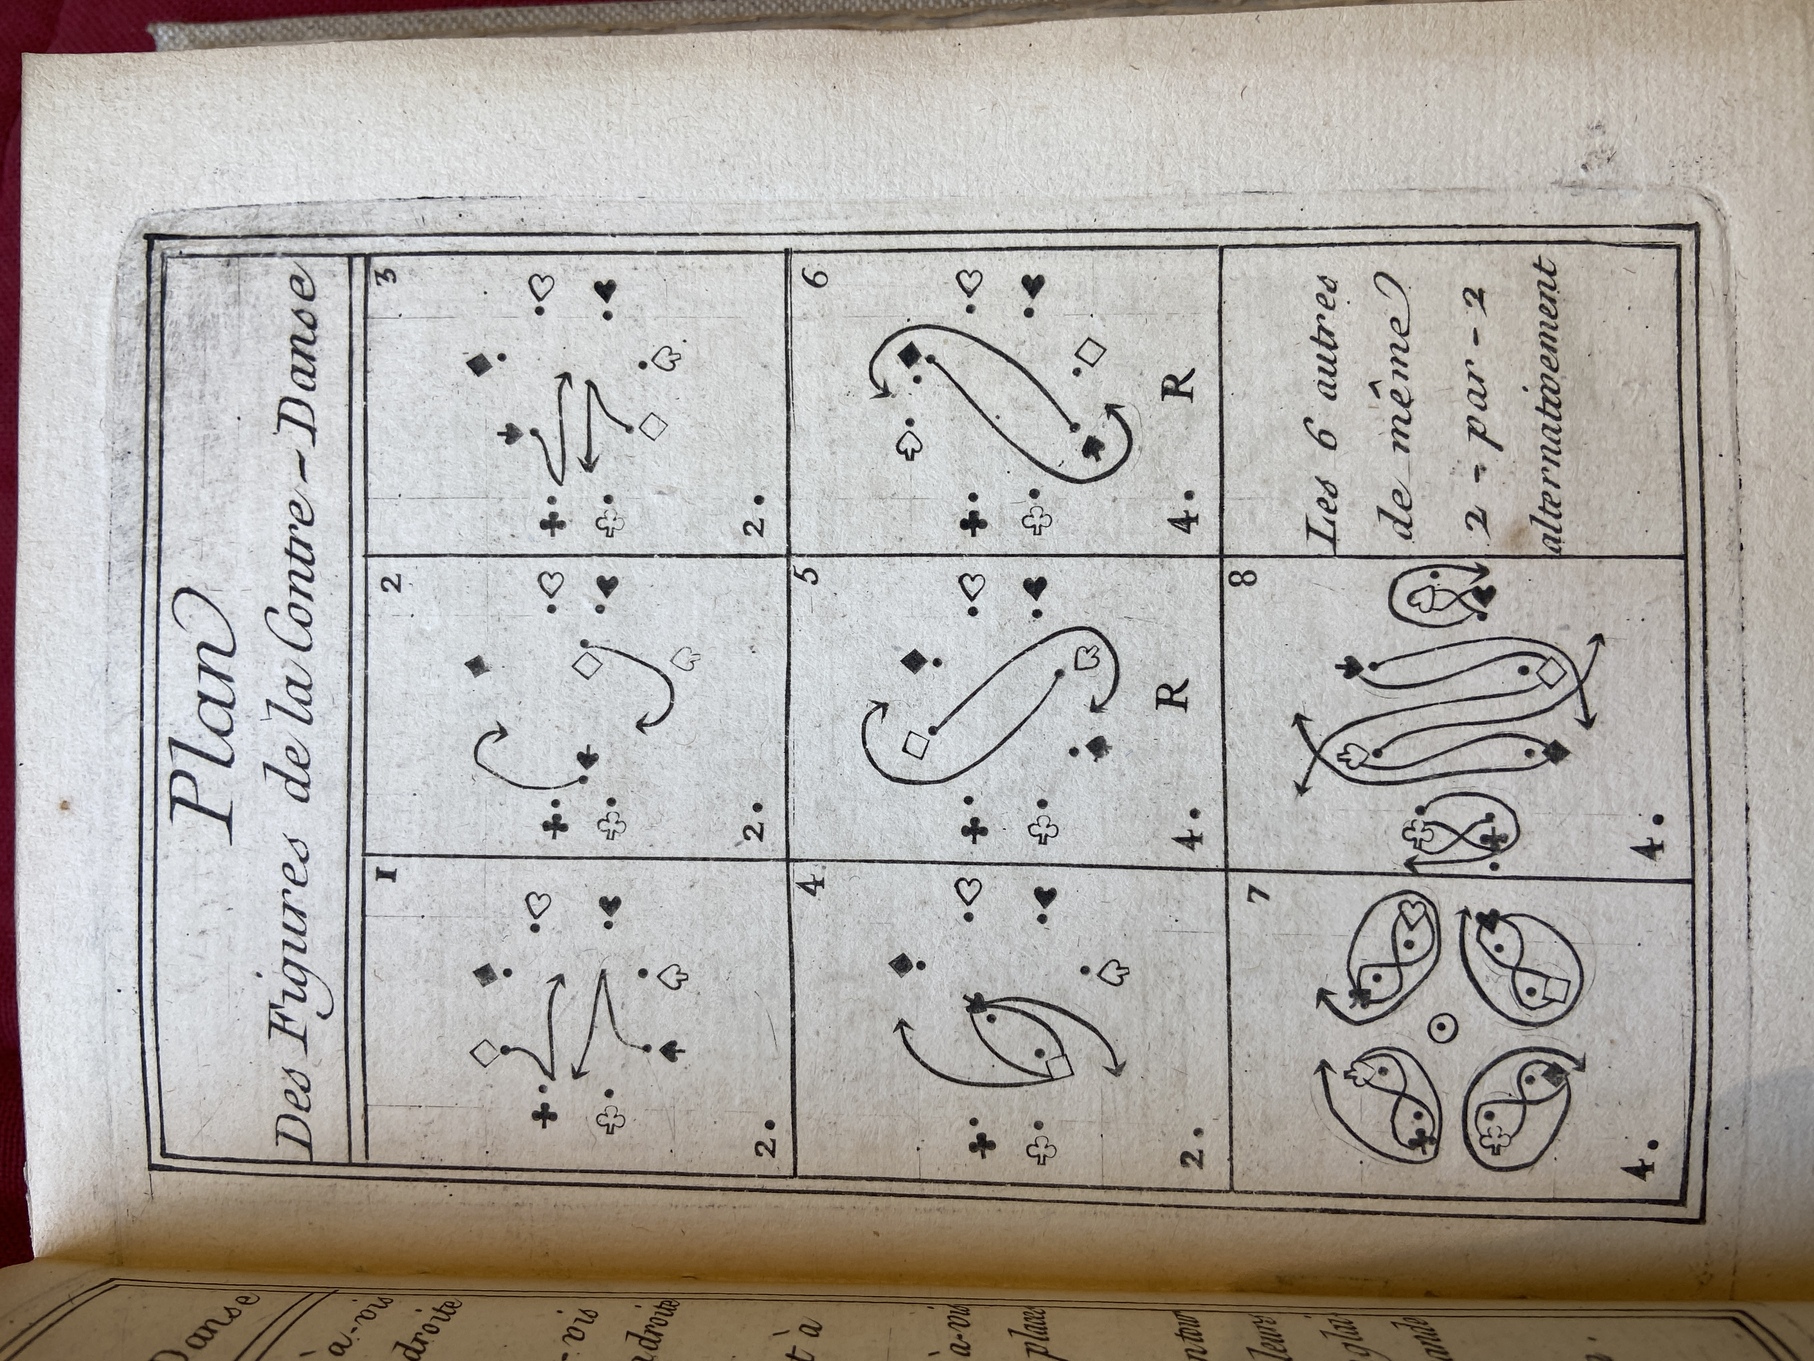 Plan
Des Figures de la Contre-Danse
1
2.
2
2.
3
2.
4
2.
5
4. R
6
4. R
7
4.
8
4.
Les 6 autres
de même
2 - par - 2
alternativement
Danse
à-vis
droite
-vis
droite
t à
à-vis
places
leurs